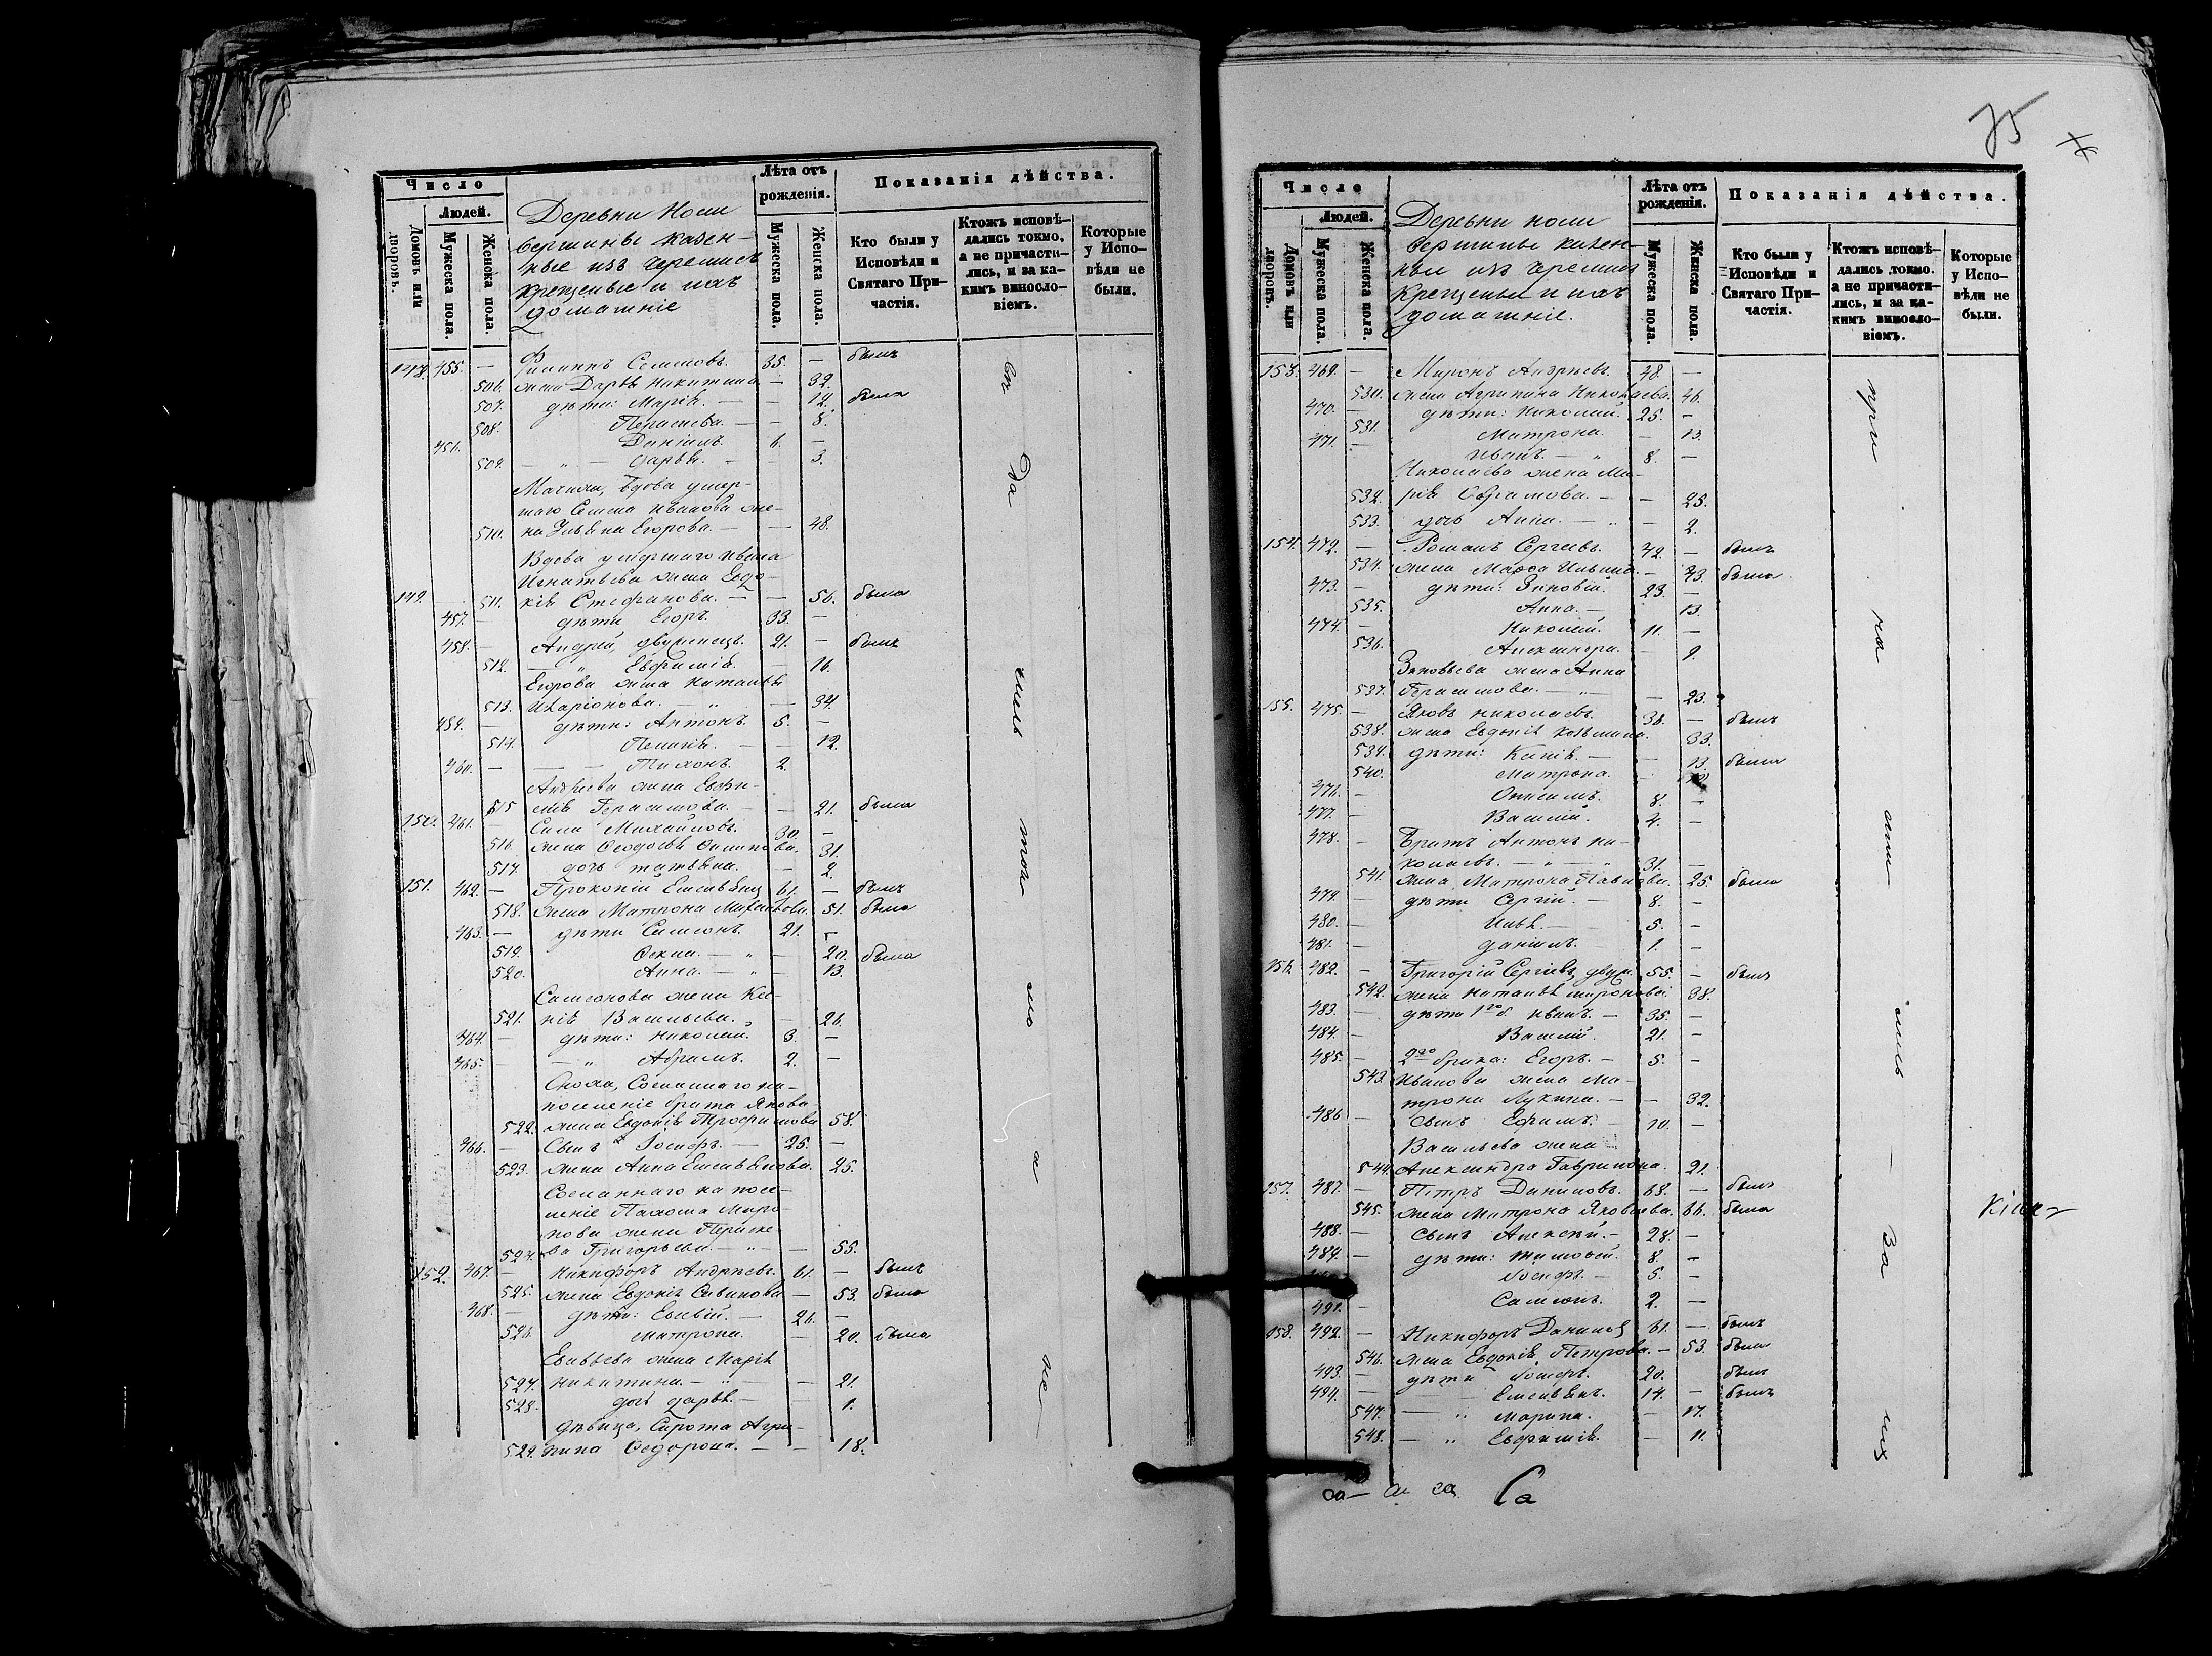 75
Число
Людей.
Домовъ или дворовъ.
Мужеска пола.
Женска пола.
ДеревниНоли
вершины казен-
ные изъ черемисъ
крещеные и ихъ
домашніе
Лѣта отъ рожденія.
Мужеска пола.
Женска пола.
Показанія дѣйства.
Кто были у Исповѣди и Святаго При-
частія.
Ктожъ исповѣ-
дались токмо,
а не причасти-
лись, и за ка-
кимъ винosло-
віемъ.
Которые
у Испо-
вѣди не
были.
148. 455. — Филиппъ Семеновъ. 35. — былъ
506. жена Дарья Никитина — 32.
507. дѣти: Марія. — — 12. была
508. — 8.
456. Даніилъ. 6. —
509. — " — Дарья. — 3.
Мачиха, вдова умер-
шаго Семена Иванова же-
510. на Ульяна Егорова. — — 48.
Вдова умершаго Ивана
Игнатьева жена Евдо-
149. 511. кія Стефанова. — — 56. была
457. — дѣти Егоръ. 33. —
458. — Андрей, двуженецъ. 21. — былъ
512. — " Евфимія. — 16.
Егорова жена Наталья
513. Иларіонова. — " — 34.
459. — дѣти: Антонъ. 5. —
514. Пелагія. — — 12.
460. — — — Тихонъ. 2.
Андреева жена Евфи-
515 мія Герасимова. — — 21. была
150. 461. — Сила Михайловъ. 30. —
516. жена Ѳеодосья 31.
517. дочь Татьяна. — 2.
151. 462. — Прокопій Емельяновъ 61. — былъ
518. жена Матрона Михайлова. 51. была
463. — дѣти Самсонъ. 21. —
519. Ѳекла. — " — 20. была
520. Анна. — " — 13.
Самсонова жена Ксе-
521. нія Васильева. — 26.
464. — дѣти: Николай. 3. —
465. — — " Абрамъ. 2. —
Сноха, Сосланнаго на
поселеніе брата Якова
522. жена Евдокія Трофимова 58.
466. — Сынъ Іосифъ. — 25. —
523. жена Анна Емельянова. 25.
Сосланнаго на посе-
леніе Пахома Миро-
нова жена Параске-
524. ва Григорьева. — " — — 55.
152. 467. — Никифоръ Андреевъ. 61. — былъ
525. жена Евдокія Савинова — 53. была
468. — дѣти: Евсевій. — 26. —
526. Матрона. — 20. была
Евсевьева жена Марія
527. Никитина. — " — — 21.
528. дочь Дарья. — — 1.
дѣвица, Сирота Агри-
529. пина Ѳедорова. — — 18.
Число
Людей.
Домовъ или дворовъ.
Мужеска пола.
Женска пола.
Деревни Ноли
вершины казен-
ные изъ черемисъ
крещеные и ихъ
домашніе.
Лѣта отъ рожденія.
Мужеска пола.
Женска пола.
Показанія дѣйства.
Кто были у Исповѣди и Святаго При-
частія.
Ктожъ исповѣ-
дались токмо.
а не причасти-
лись, и за ка-
кимъ винosло-
віемъ.
Которые
у Испо-
вѣди не
были.
153. 469. — Миронъ Андреевъ. 48. —
530. жена Агрипина Николаева. 46.
470. — дѣти: Николай. 25. —
531. Матрона. — 13.
471. — Иванъ. — " 8. —
Николаева жена Ма-
532. рія Абрамова. — — 25.
533. дочь Анна. — " — 2.
154. 472. — Романъ Сергеевъ. 42. — былъ
534. жена Марѳа Ильина. — 43. была
473. — дѣти: Зиновій. 23. —
535. Анна. — 13.
474. — Николай. 11. —
536. Александра. — 9.
Зиновьева жена Анна
537. Герасимова. — " — — 23.
155. 475. — Яковъ Николаевъ. 36. — былъ
538. жена Евдокія Козьмина. 33.
539. дѣти: Ксенія. — — 13. была
540. Матрона. —
476. — Онисимъ. 8. —
477. — Василій. 4. —
478. — Братъ Антонъ Ни-
колаевъ. — " — " 31. —
541. жена Матрона Павлова. 25. была
479. — дѣти Сергій. — 8. —
480. — Илья. — 5. —
481. — Даніилъ. — 1. —
156. 482. — Григорій Сергеевъ, двуж. 55. — былъ
542. жена Наталья Миронова. 38.
483. — дѣти 1го б. Иванъ. — 35. —
484. — Василій. 21. —
485. — 2го брака: Егоръ. — 5. —
543. Иванова жена Ма-
трона Лукина. — — 32.
486 — Сынъ Ефимъ. — 10. —
Васильева жена —
544. Александра Гаврилова. 21.
157. 487. — Петръ Даниловъ. 68. — былъ
545. жена Матрона Яковлева. 66. была
488. — Сынъ Алексей. — 28. —
489. — дѣти: Тимоѳей. 8. —
Іосифъ. — 5. —
491. — Самсонъ. 2. —
158. 492. — Никифоръ Даниловъ 61. — былъ
546. жена Евдокія Петрова. — 53. была
493. — дѣти Іосифъ. 20. былъ
494. — Емельянъ. 14. — былъ
547. — " Марина. — 17.
548. — " Евфимія. — 11.